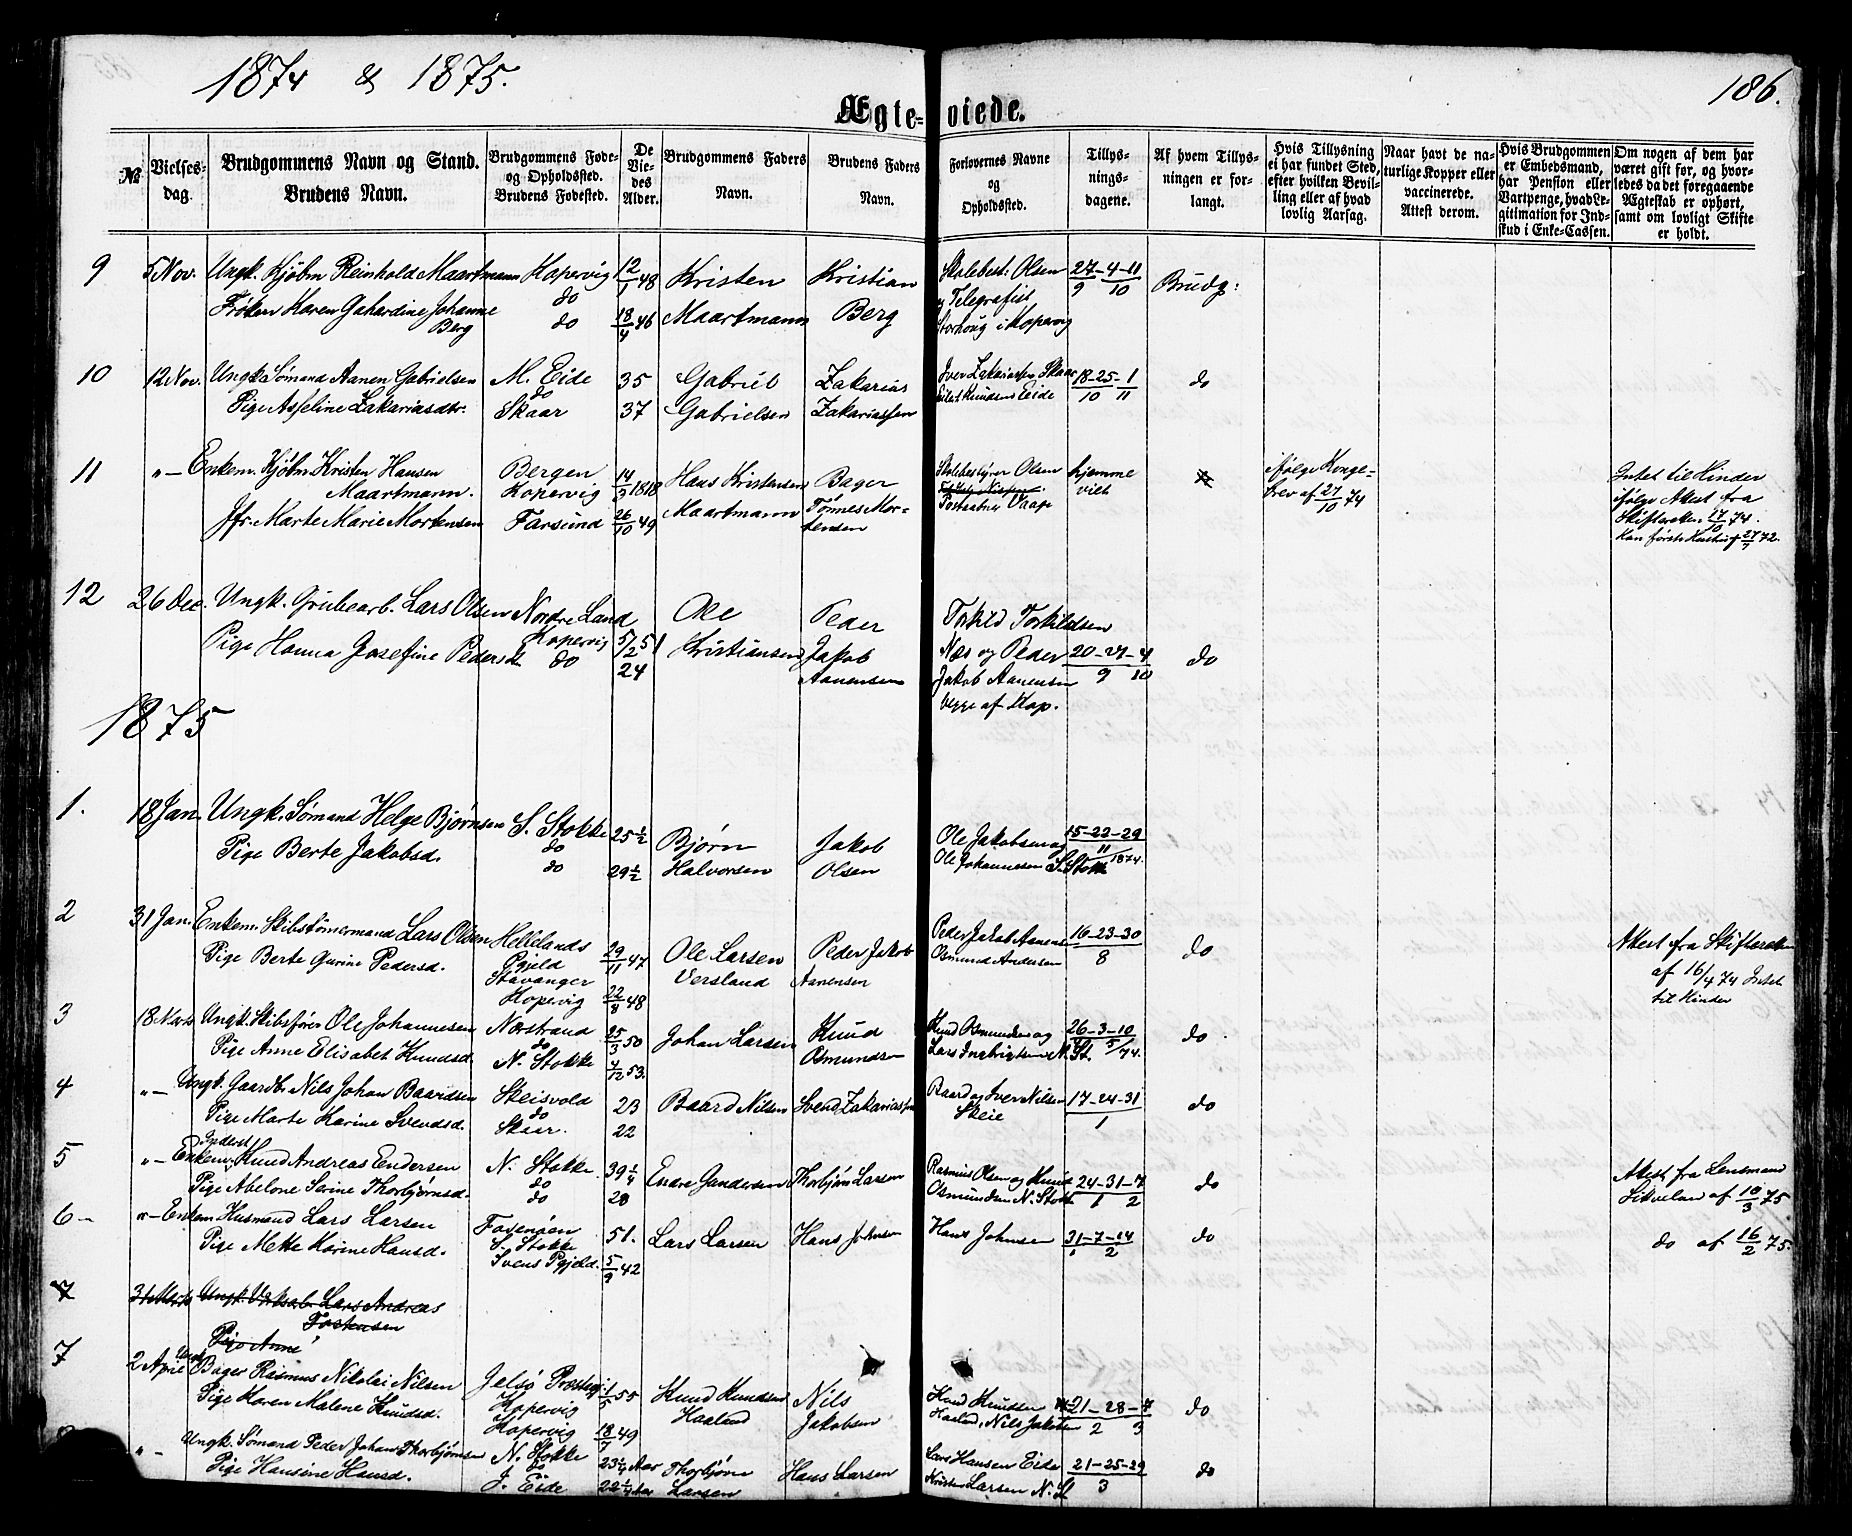 1874 & 1875.
186.
Ægte- viede.
№
Vielses-
dag.
Brudgommens Navn og Stand.
Brudens Navn.
Brudgommens Føde-
og Opholdssted.
Brudens Fødested.
De
Vie-
des
Alder.
Brudgommens Faders
Navn.
Brudens Faders
Navn.
Forlovernes Navne
og
Opholdssted.
Tillys-
nings-
dagene.
Af hvem Tillys-
ningen er for-
langt.
Hvis Tillysning
ei har fundet Sted,
efter hvilken Bevil-
ling eller af hvad
lovlig Aarsag.
Naar havt de na-
turlige Kopper eller
vaccinerede.
Attest derom.
Hvis Brudgommen
er Embedsmand,
har Pension eller
Vartpenge, hvad Le-
gitimation for Ind-
skud i Enke-Cassen.
Om nogen af dem har
været gift før, og hvor-
ledes da det foregaaende
Ægteskab er ophørt,
samt om lovligt Skifte
er holdt.
9 5 Nov. Ungk. Kjøbm Reinhold Maartmann Kopervig 12/1 48 Kristen Kristian Skolebest: Olsen 27-4-11 Brudg:
do 9 10
Frøken Karen Gahardine Johanne do 18/4 46 Maartmann Berg og Telegrafist
Berg Storhoug i Kopervig
10 12 Nov. Ungk. Sømand Aanen Gabrielsen M. Eide 35 Gabriel Zakarias Iver Zakariassen Skaar 18-25-1 do
do 10 11
Pige Asseline Zakariasdtr. Skaar 37 Gabrielsen Zakariassen Knudsen Eide
11 "- Enkem. Kjøbm Kristen Hansen Bergen 14/3 1818 Hans Kristensen Bager Skolebestyrer Olsen hjemme ifølge Konge- Intet til Hinder
Maartmann. Kopervig Maartmann Tønnes Mor- Vaage viet brev af 27/10 74 ifølge Attest fra
Jfr. Marte Marie Mortensen Farsund 26/10 49 tensen Skifteretten 17/10 74.
27/7 72.
12 26 Dec. Ungk. Grubearb. Lars Olsen Nordre Land Ole Peder Torkild Torkildsen
Kopervig 5/2 51
Pige Hanna Josefine Pedersd. do 24 Kristiansen Jakob Næs og Peder 20-27-4 do
Aanensen Jakob Aanensen 9 10
begge af Kop.
1875
1. 18 Jan. Ungk. Sømand Helge Bjørnsen S. Stokke 25½ Bjørn Jakob Ole Jakobsen og 15-22-29
do 11/1874.
Pige Berte Jakobsd. do 29½ Halvorsen Olsen Ole Johannesen S. Stokke
2 31 Jan. Enkem. Skibstømermand Lars Olsen Hellelands 29/11 47 Ole Larsen Peder Jakob Peder Jakob Aanensen 16-23-30 do Attest fra Skifteretten
Pgjeld 8
Pige Berte Gurine Pedersd. Stavanger Versland Aanensen Osmund Andersen af 16/4 74 Intet
Kopervig 22/8 48 til Hinder
3 18 Marts Ungk. Skibsfører Ole Johannesen Norstrand 25/3 50 Johan Larsen Knud Knud Osmundsen og 26-3-10 do
do 5/74.
Pige Anne Elisabet Knudsd. N. Stokke 4/12 53. Osmundsen Lars Ingbrigtsen N. St.
4 "- Ungk. Gaardb. Nils Johan Baardsen Skeisvold 23 Baard Nilsen Svend Zakariassen Baard og Iver Nilsen 17-24-31 do
do Skeie 1
Pige Marte Karine Svendsd. Skaar. 22
Inderst
5 "- Enkem. Knud Andreas Endersen N. Stokke 39¼ Endre Gundersen Thorbjørn Larsen Rasmus Olsen og Knud 24-31-7 do Attest fra Lensmand
do 1 2
Pige Abelone Serine Thorbjørnsd. do 28 Osmundsen N. Stokke af 10/3 75
6- "- Enkem Husmand Lars Larsen 51. Lars Larsen Hans Johnsen Hans Johnsen 31-7-14 do do af 16/2 75.
S. Stokke 1 2
Pige Mette Karine Hansd. Pgjeld. 5/9 42
7 31 Marts Ungk. Lars Andreas
Tostensen
Pige Anne
7 2 April Ungk. Bager Rasmus Nikolai Nilsen Jelsø Præstegj 1/5 55 Knud Knudsen Nils Knud Knudsen 21-28-7 do
Kopervig 2 3
Pige Karen Malene Knudsd. Kopervig 18/7 49 Haaland Jakobsen Haaland, Nils Jakobsen
"- Ungk. Sømand Peder Johan Thorbjørnsen N. Stokke 23¼ Aar Thorbjørn Hans Larsen Lars Hansen Eide 21-25-29 do
do 3
Pige Hansine Hansd. J. Eide 22¼ Aar Larsen Larsen N. St